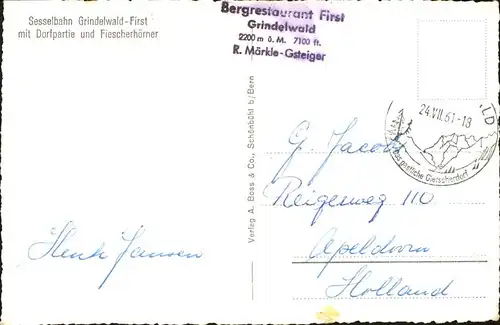 Sesselbahn Grindelwald-First
mit Dorfpartie und Fiescherhörner
Bergrestaurant First
Grindelwald
2200 m ü. M. 7100 ft.
R. Märkle-Gsteiger
24.VII.61-18
das gastliche Gletscherdorf
Verlag A. Boss & Co., Schönbühl b/Bern
G. Jacobs
Reigerweg 110
Apeldoorn
Holland
Henk Jansen